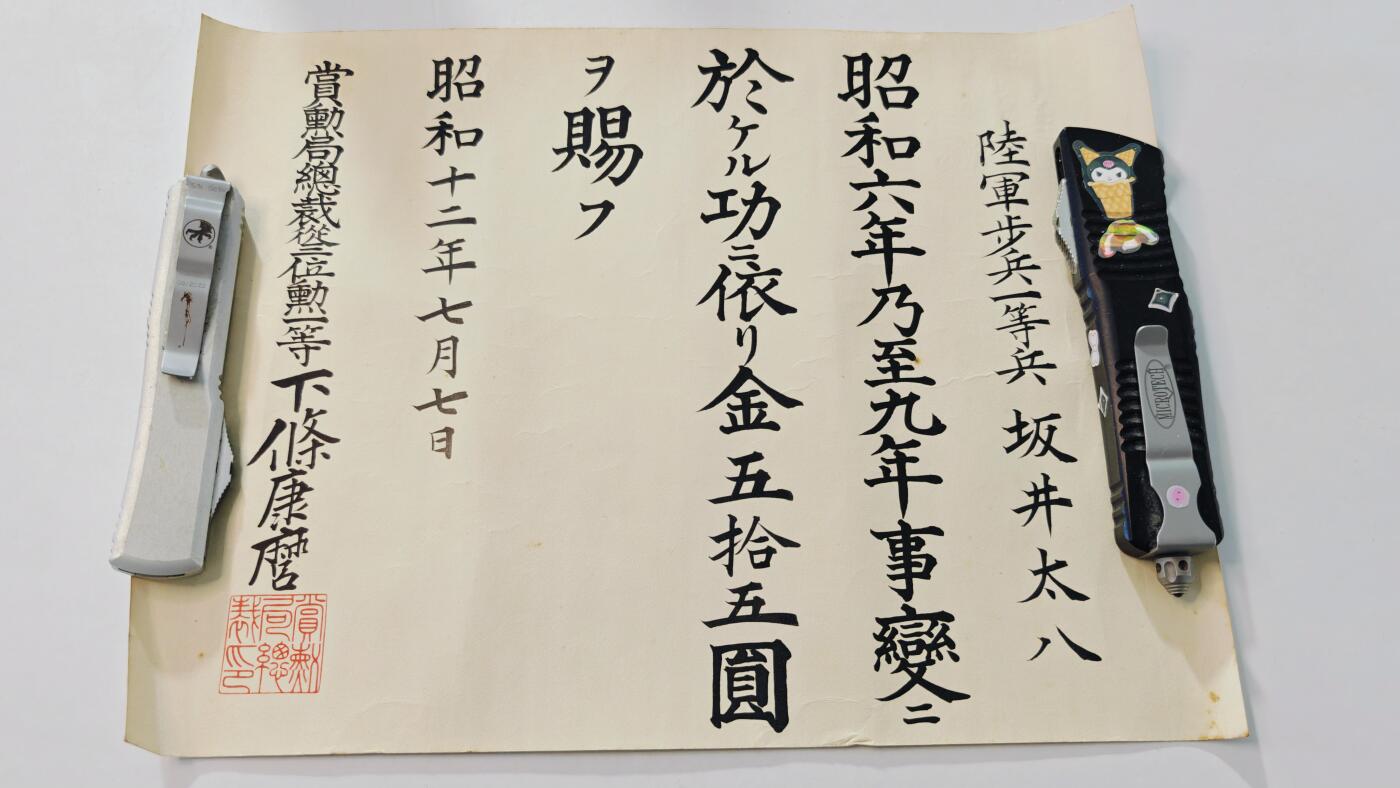 陸軍歩兵一等兵 坂井太八
昭和六年乃至九年事變ニ
於ケル功ニ依リ金五拾五圓
ヲ賜フ
昭和十二年七月七日
賞勳局總裁從三位勳一等下條康麿
賞勳
局總
裁印
MICROTECH